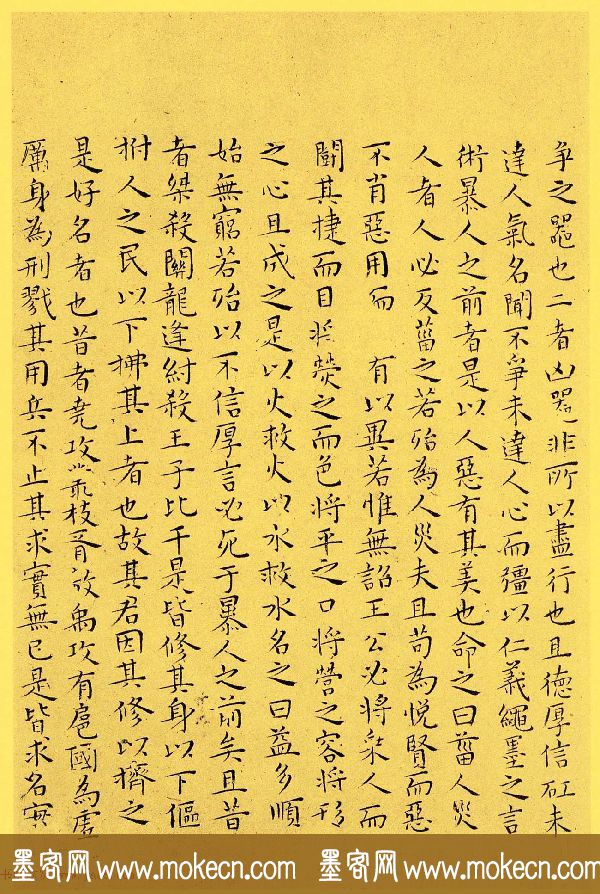 争之噐也二者凶噐非所以盡行也且德厚信矼未
達人氣名聞不爭未達人心而彊以仁義繩墨之言
術暴人之前者是以人惡有其美也命之曰菑人災
人者人必反菑之若殆為人災夫且苟為悅賢而惡
不肖惡用而 有以異若惟無詔王公必將乘人而
鬬其捷而目將熒之而色將平之口將營之容將形
之心且成之是以火救火以水救水名之曰益多順
始無窮若殆以不信厚言必死于暴人之前矣且昔
者桀殺關龍逢紂殺王子比干是皆修其身以下傴
拊人之民以下拂其上者也故其君因其修以擠之
是好名者也昔者堯攻叢枝胥敖禹攻有扈國為虛
厲身為刑戮其用兵不止其求實無已是皆求名實
墨客网 www.mokecn.com 墨客网 www.mokecn.com